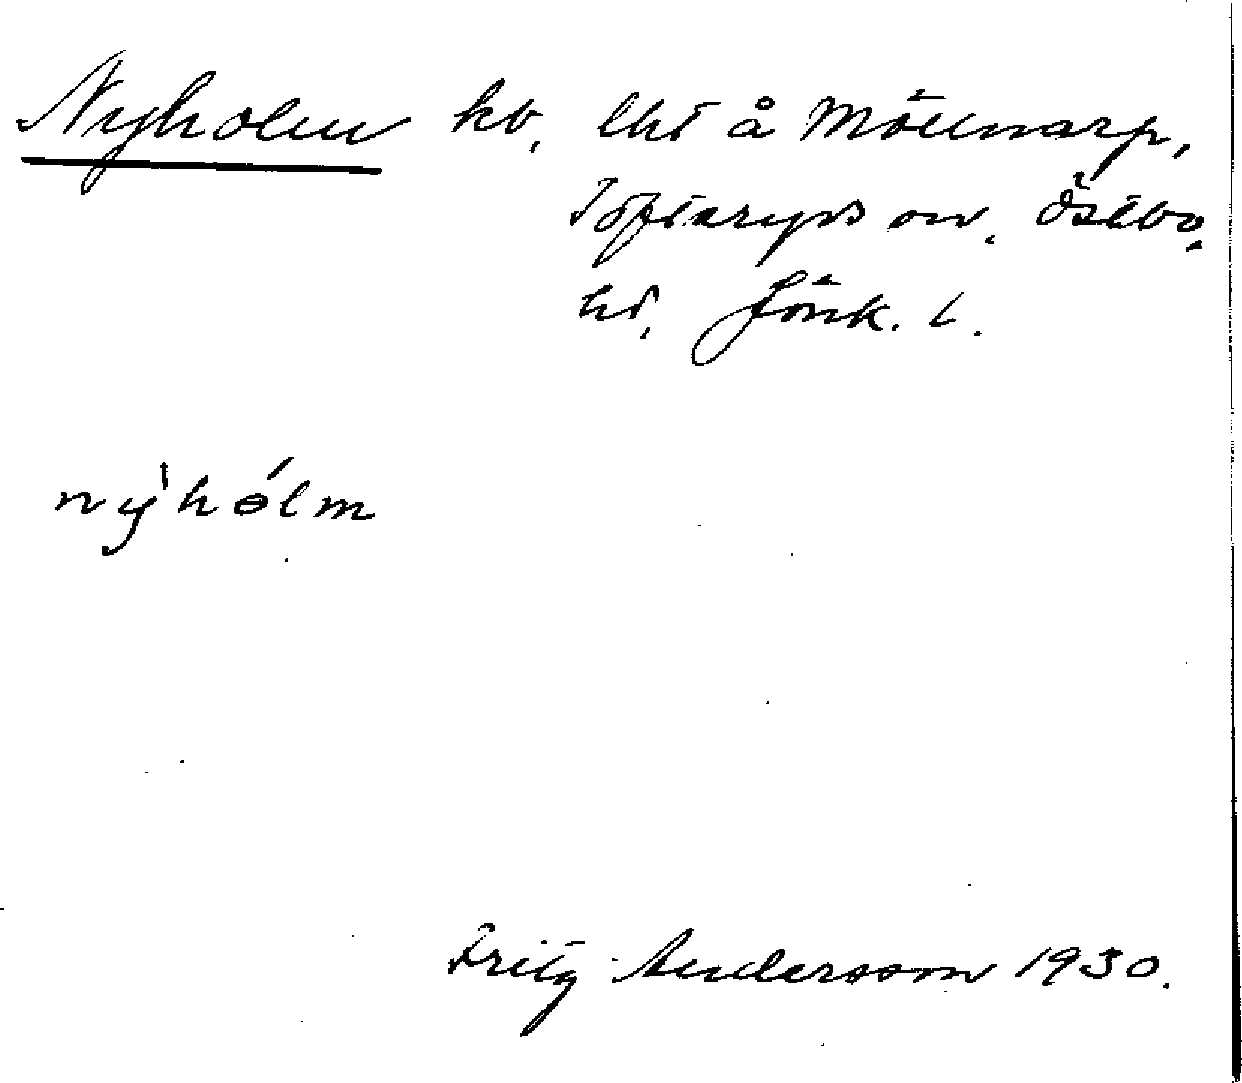 Nyholm hb, lht å Möllnarp,
Tofteryds sn. Östbo
hd, Jönk. l.
nýhólm
Fritz Andersson 1930.